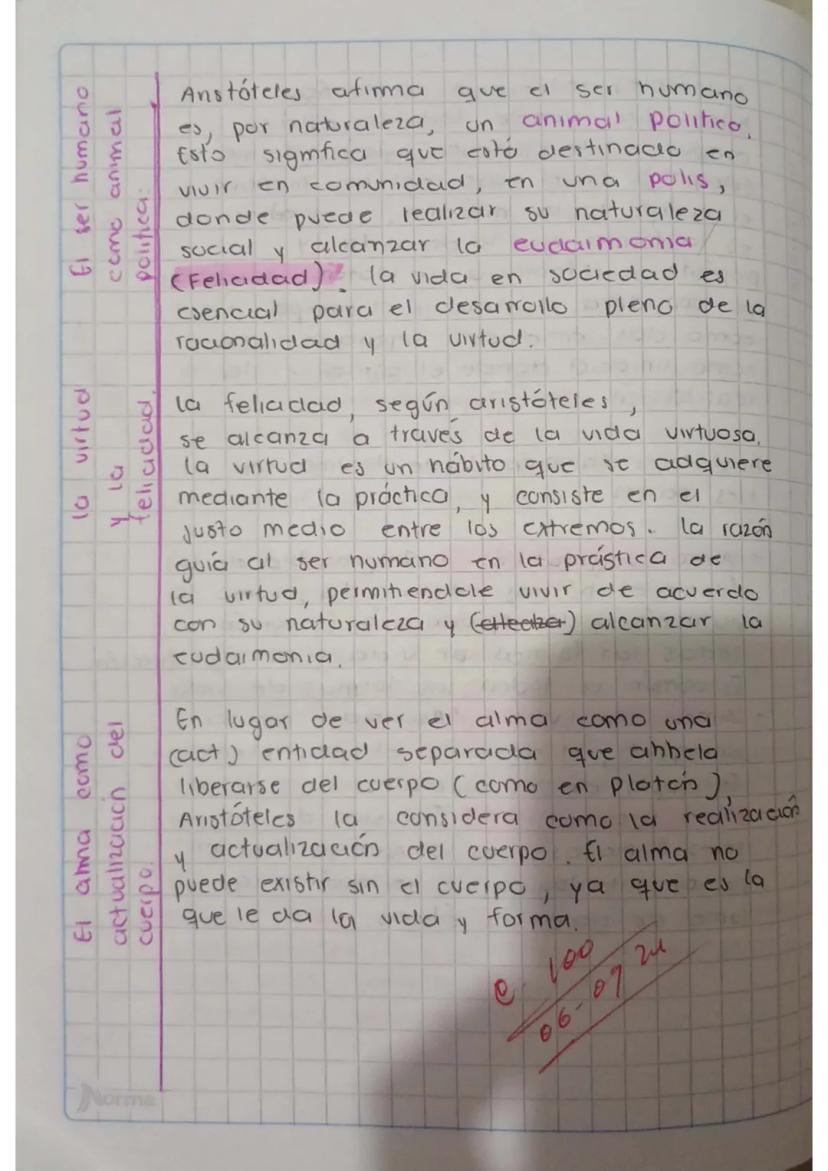 El ser humano
como animal
politica:
Aristóteles afirma que el ser humano
es, por naturaleza, un animal politico.
Esto significa que está destinado en
vivir en comunidad, en una polis,
donde puede realizar su naturaleza
social y alcanzar la eudaimonia
(Felicidad). la vida en sociedad es
esencial para el desarrollo pleno de la
racionalidad y la virtud.
la virtud
y la
felicidad.
la felicidad, según aristóteles,
se alcanza a través de la vida virtuosa.
la virtud es un hábito que se adquiere
mediante la práctica, y consiste en el
justo medio entre los extremos. la razón
guía al ser humano en la prástica de
la virtud, permitiendole vivir de acuerdo
con su naturaleza y alcanzar la
eudaimonia.
El alma como
actualización del
cuerpo.
En lugar de ver el alma como una
(act) entidad separada que anhela
liberarse del cuerpo (como en Platón),
Aristóteles la considera como la realización
y actualización del cuerpo. El alma no
puede existir sin el cuerpo, ya que es la
que le da la vida y forma.
e 100
06-09 24
Norma